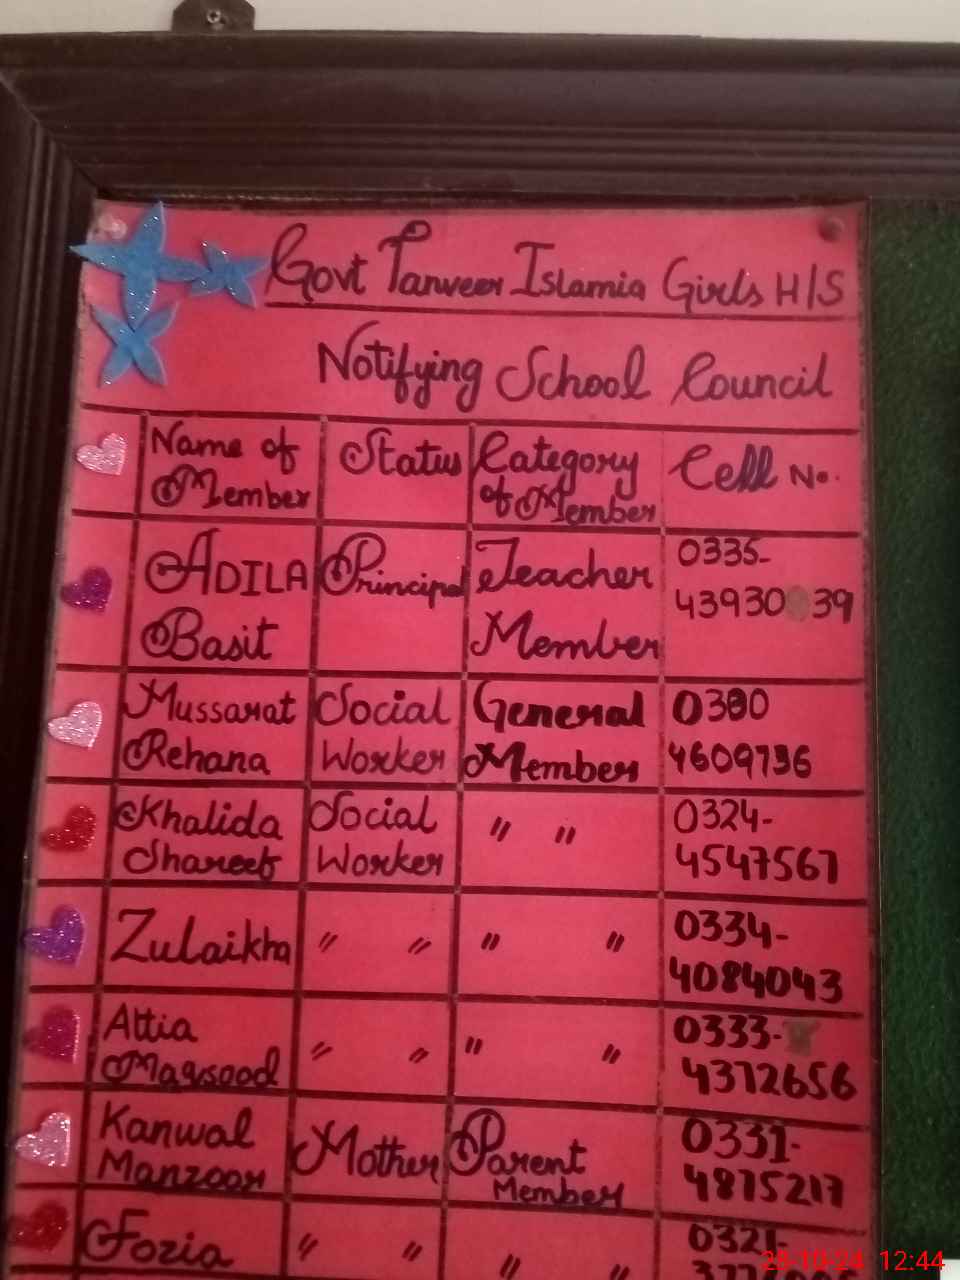 Govt Tanveer Islamia Girls H/S
Notifying School Council
Name of Member Status Category of Member Cell No.
ADILA Basit Principal Teacher Member 0335-4393039
Mussarat Rehana Social Worker General Member 0300 4609736
Khalida Shareef Social Worker " " 0324-4547567
Zulaikha " " " " 0334-4084043
Attia Maqsood " " " " 0333-4372656
Kanwal Manzoor Mother Parent Member 0331-4875217
Fozia " " " " 0321-
25-10-24 12:44